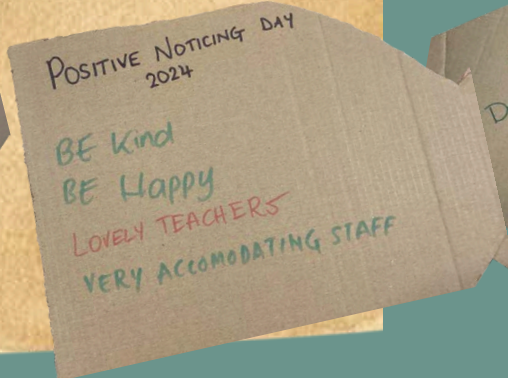 POSITIVE NOTICING DAY
2024
BE Kind
BE Happy
LOVELY TEACHERS
VERY ACCOMODATING STAFF
D